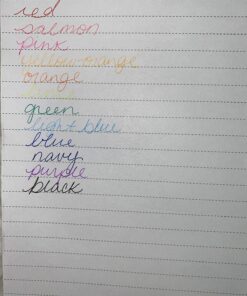 red
salmon
pink
yellow orange
orange
green
light blue
blue
navy
purple
black